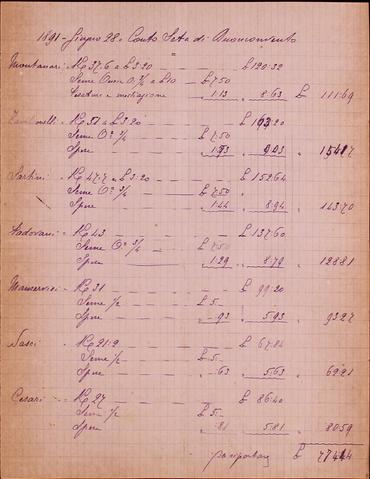 1891 - Giugno 28. Conto Seta di Buonconvento
Montanari. Kg 37.6 a £ 3.20 £ 120.32
Seme Once 0.3/4 a £10 - £ 7.50
e mediazione 1.13 " 8.63 £ 111.69
Zambonelli. Kg 51 a £ 3.20 £ 163.20
Seme On 3/4 £ 7.50
Spese 1.53 " 9.03 " 154.17
Sartini. Kg 47.7 a £ 3.20 £ 152.64
Seme On 3/4 - £ 7.50
Spese 1.44 " 8.94 " 143.70
Padovani. Kg 43 £ 137.60
Seme On 3/4 £ 7.50
Spese 1.29 " 8.79 " 128.81
Kg 31 £ 99.20
Seme 1/2 £ 5.
Spese - 93 " 5.93 " 93.27
Nasci. Kg 21.2 £ 67.84
Seme 1/2 £ 5.
Spese - 63 " 5.63 " 62.21
Cesari. Kg 27 £ 86.40
Seme 1/2 £ 5.
Spese 81 " 5.81 " 80.59
£ 774.44